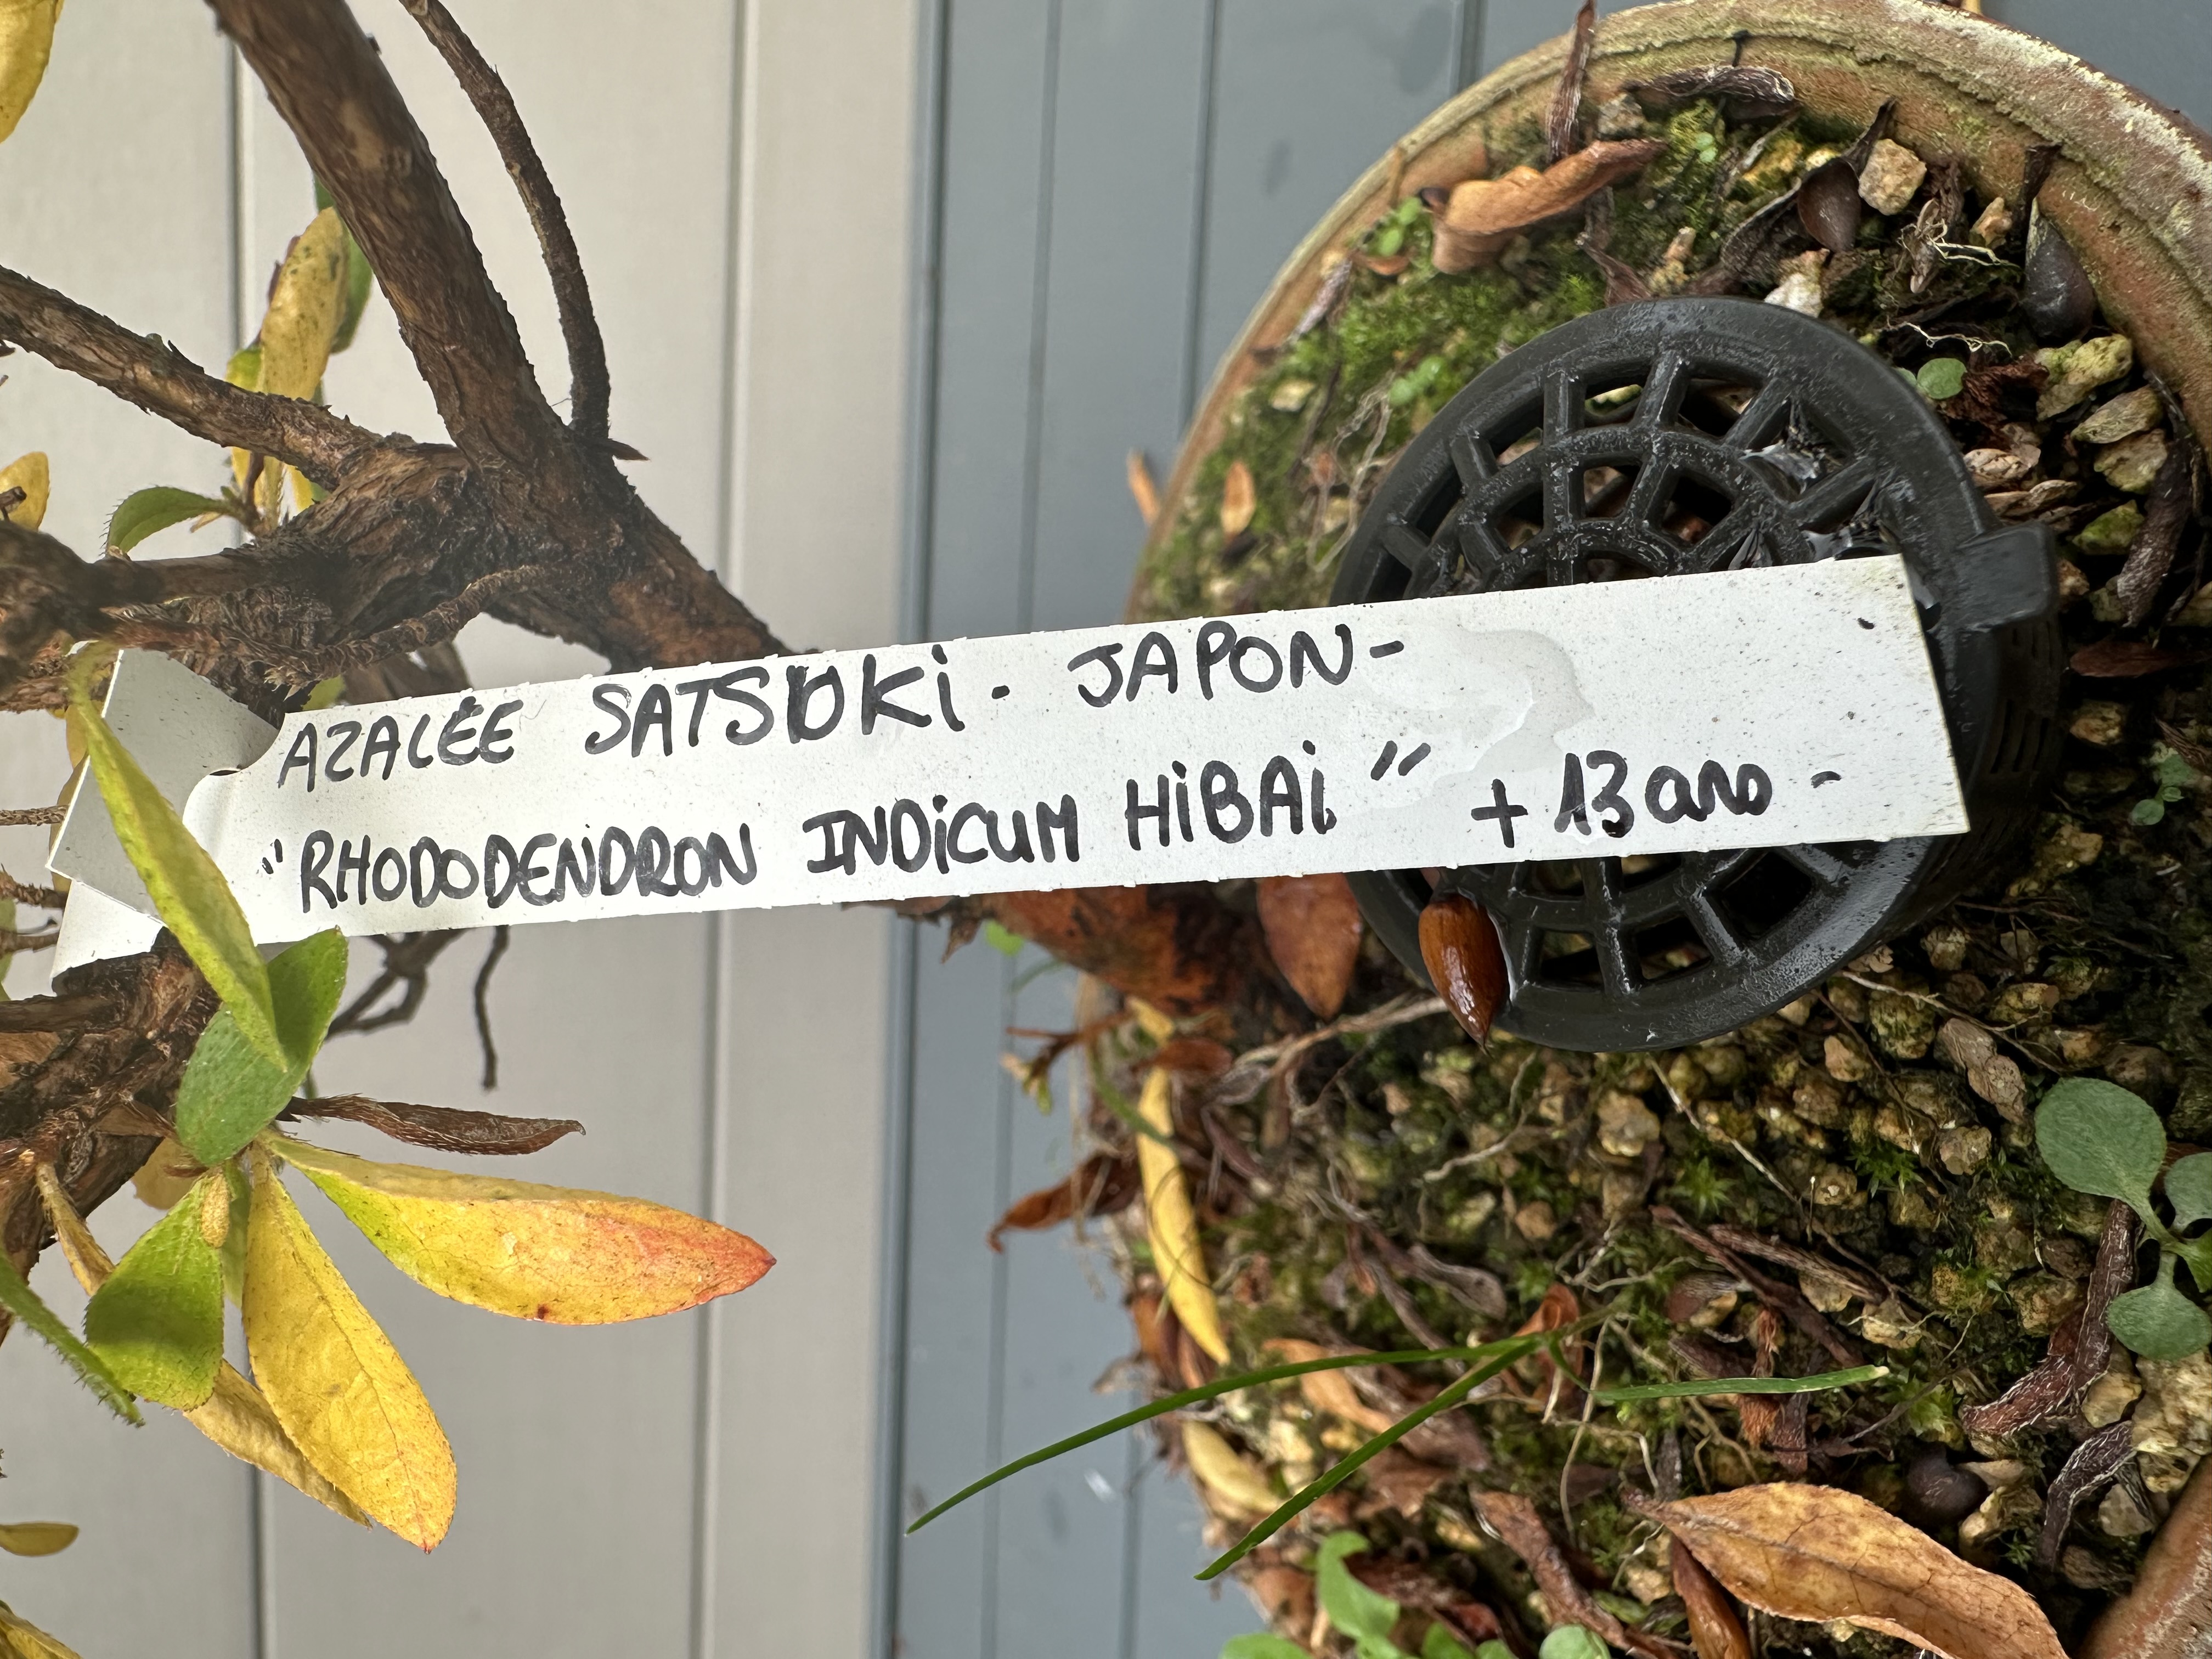 AZALÉE SATSUKi. JAPON-
"RHODODENDRON INDiCUM HiBAi" + 13 ans -